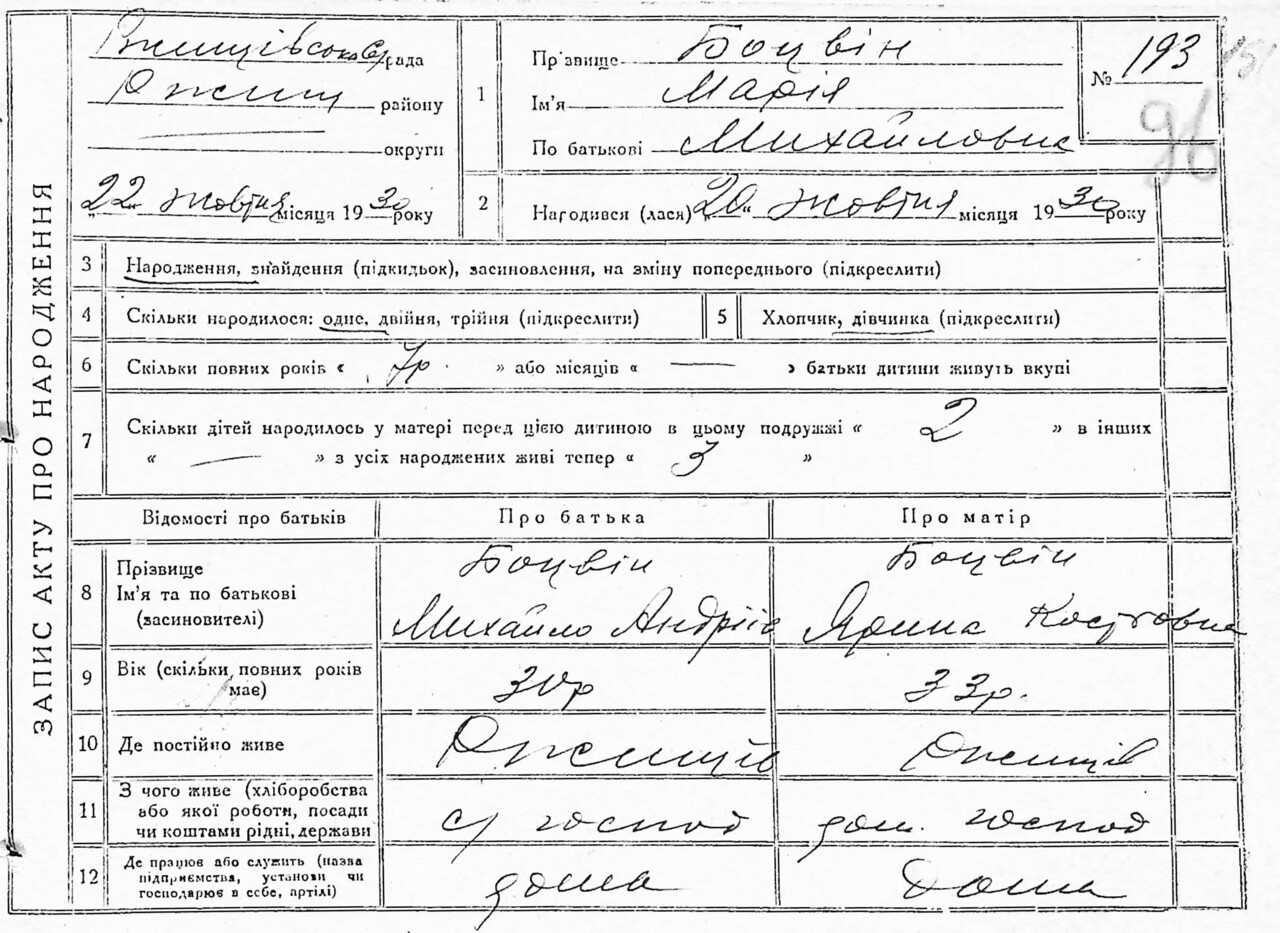 ЗАПИС АКТУ ПРО НАРОДЖЕННЯ
Ржищівсько С/рада
Ржищ району
округи
"22" жовтня місяця 1930 року
1
Прізвище Боцвін
Ім'я Марія
По батькові Михайловна
№ 193
96
2
Народився (лася) "20" жовтня місяця 1930 року
3 Народження, знайдення (підкидьок), засиновлення, на зміну попереднього (підкреслити)
4 Скільки народилося: одне, двійня, трійня (підкреслити)
5 Хлопчик, дівчинка (підкреслити)
6 Скільки повних років « 7р. » або місяців « — » батьки дитини живуть вкупі
7 Скільки дітей народилось у матері перед цією дитиною в цьому подружжі « 2 » в інших
« — » з усіх народжених живі тепер « 3 »
Відомості про батьків Про батька Про матір
8
Прізвище Боцвін Боцвін
Ім'я та по батькові Михайло Андріїв Ярина Костовна
(засиновителі)
9 Вік (скільки повних років 30р 33р.
має)
10 Де постійно живе Ржищів Ржищів
11
З чого живе (хліборобства
або якої роботи, посади с/ господ дом. господ
чи коштами рідні, держави
12
Де працює або служить (назва
підприємства, установи чи дома Дома
господарює в себе, артілі)